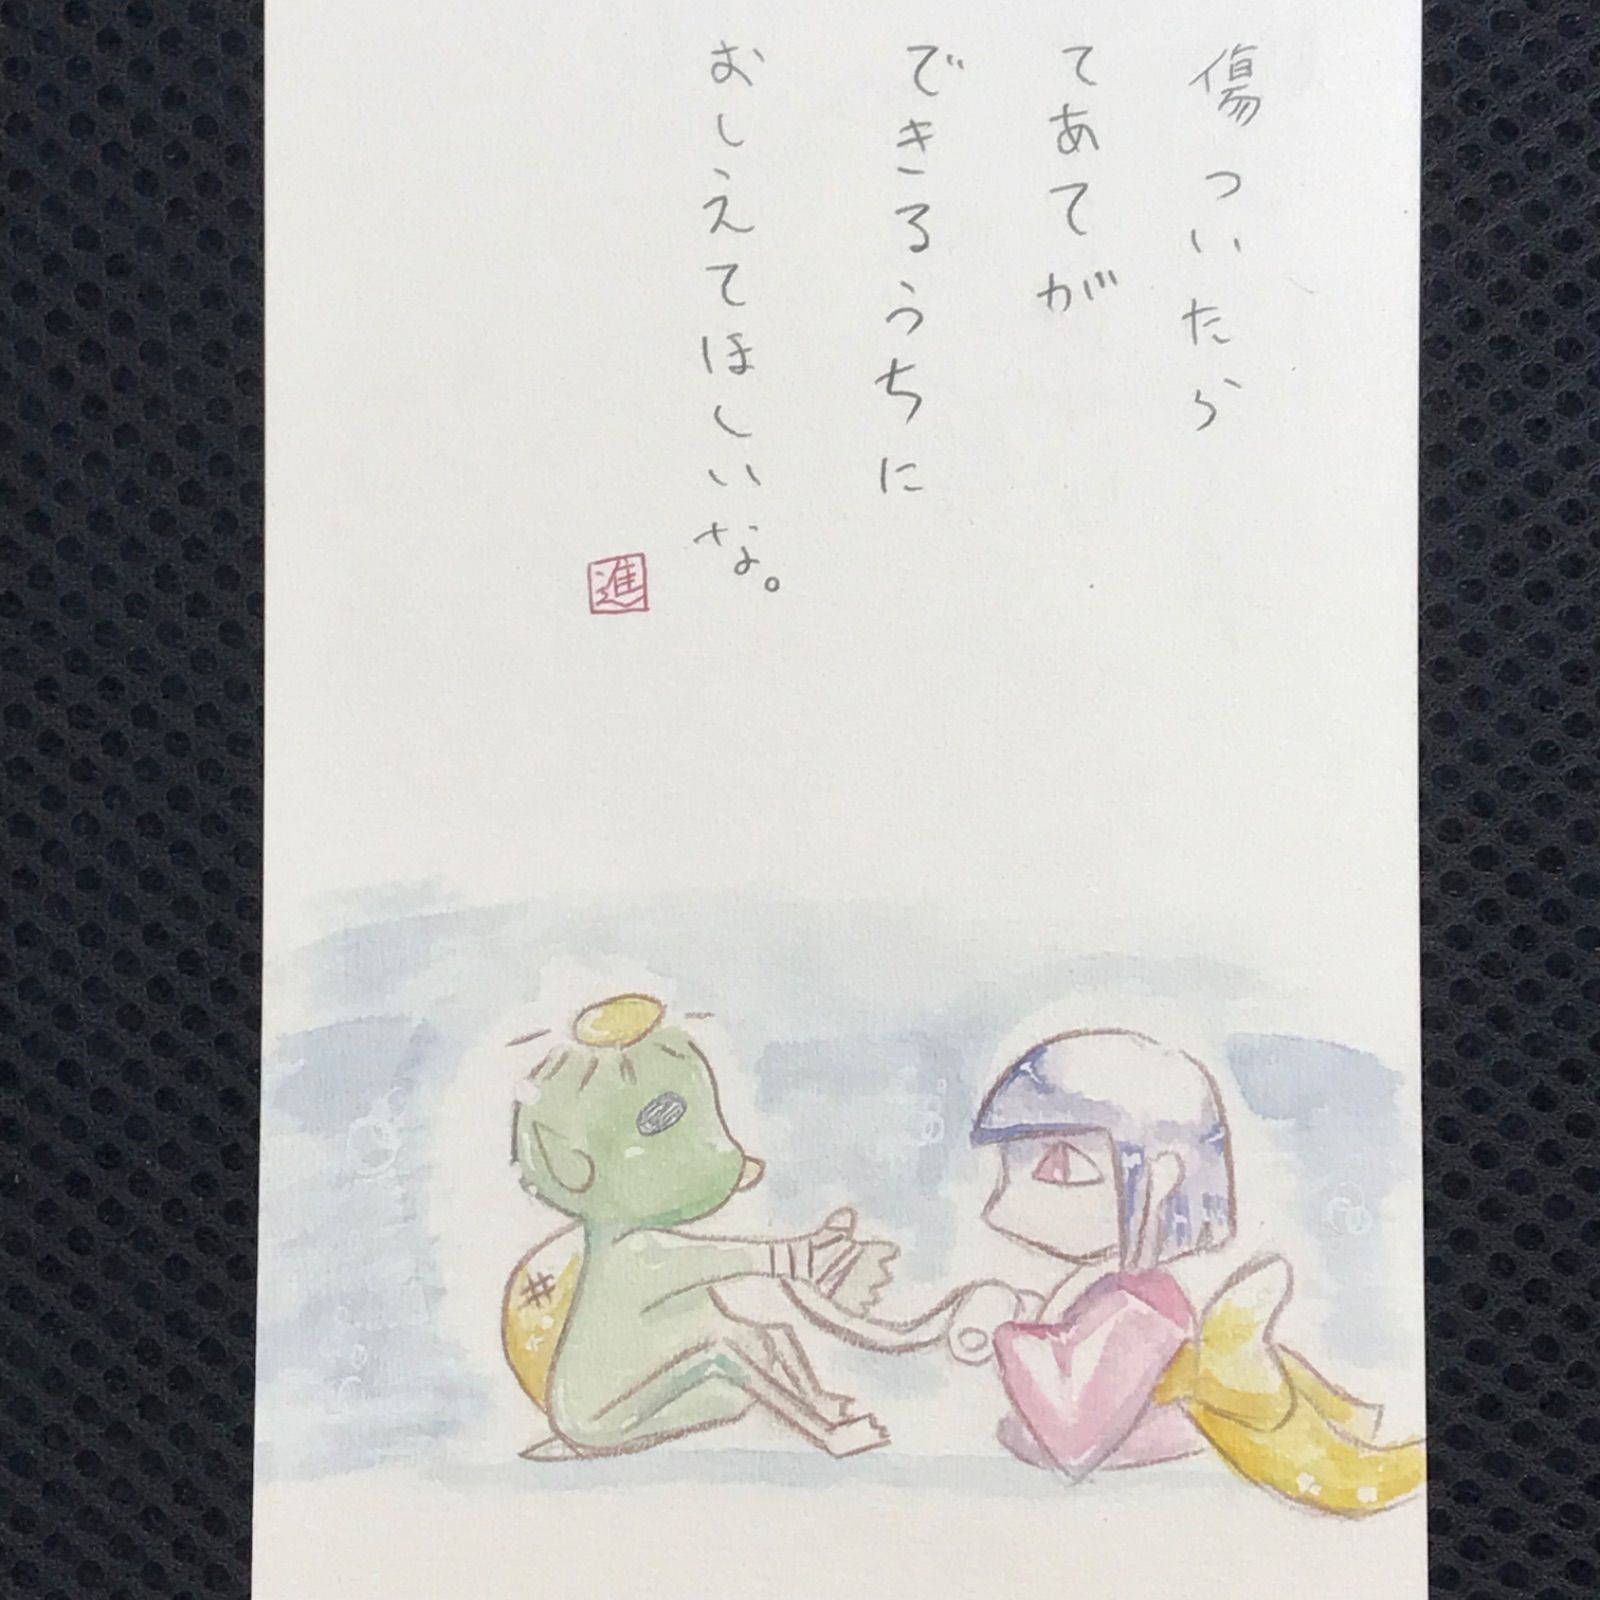 傷ついたら
てあてが
できるうちに
おしえてほしいな。
進